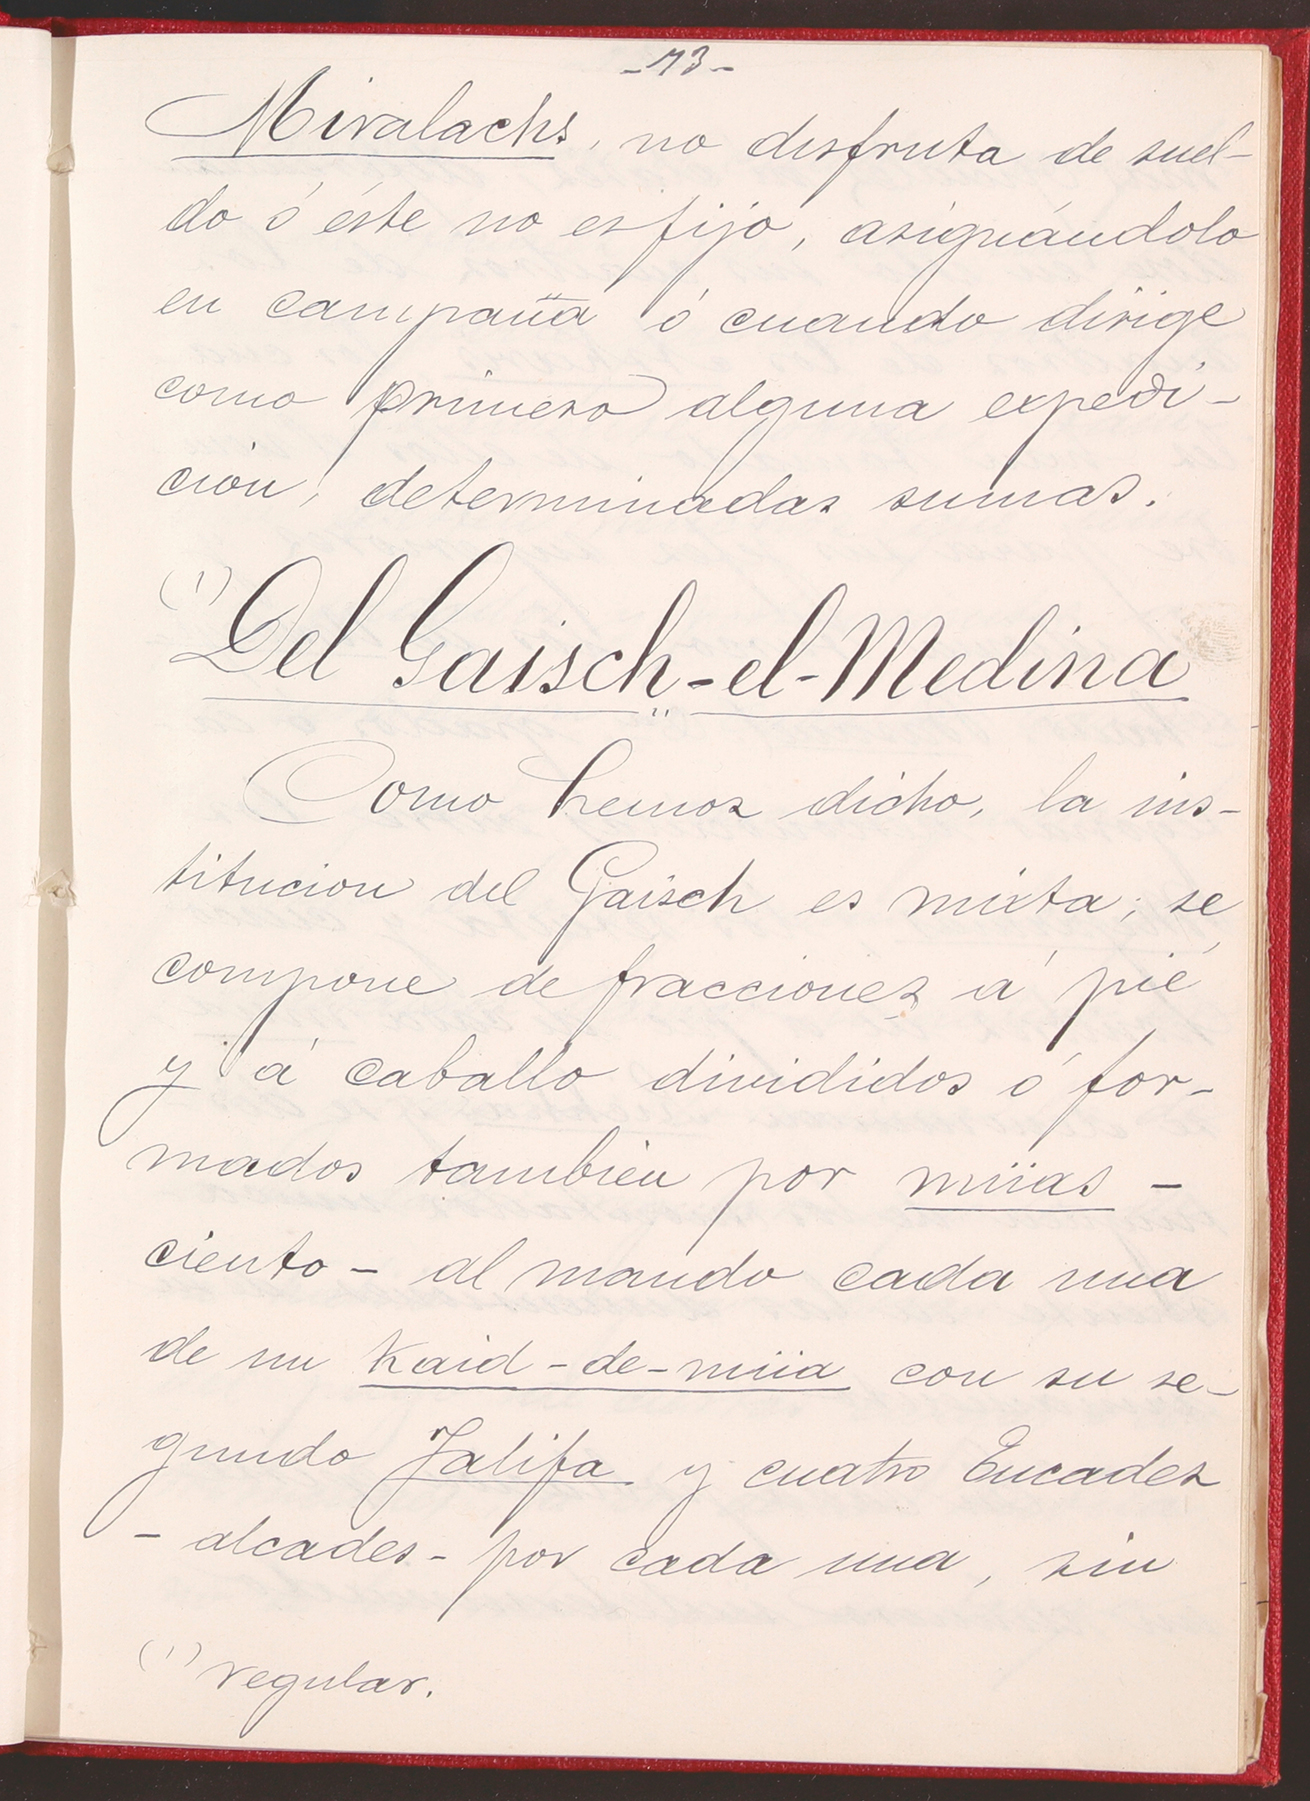 -73-
Miralachs, no disfruta de suel-
do ó éste no es fijo, asignándolo
en campaña ó cuando dirige
como primero alguna expedi-
ción, determinadas sumas.
(1) Del Gaisch-el-Medina
Como hemos dicho, la ins-
titucion del Gaisch es mixta; se
compone de fracciones á pié
y á caballo divididos ó for-
mados tambien por miias -
ciento - al mando cada una
de un Kaid-de-miia con su se-
gundo Jalifa y cuatro Encades
- alcades - por cada una, sin
(1) regular.